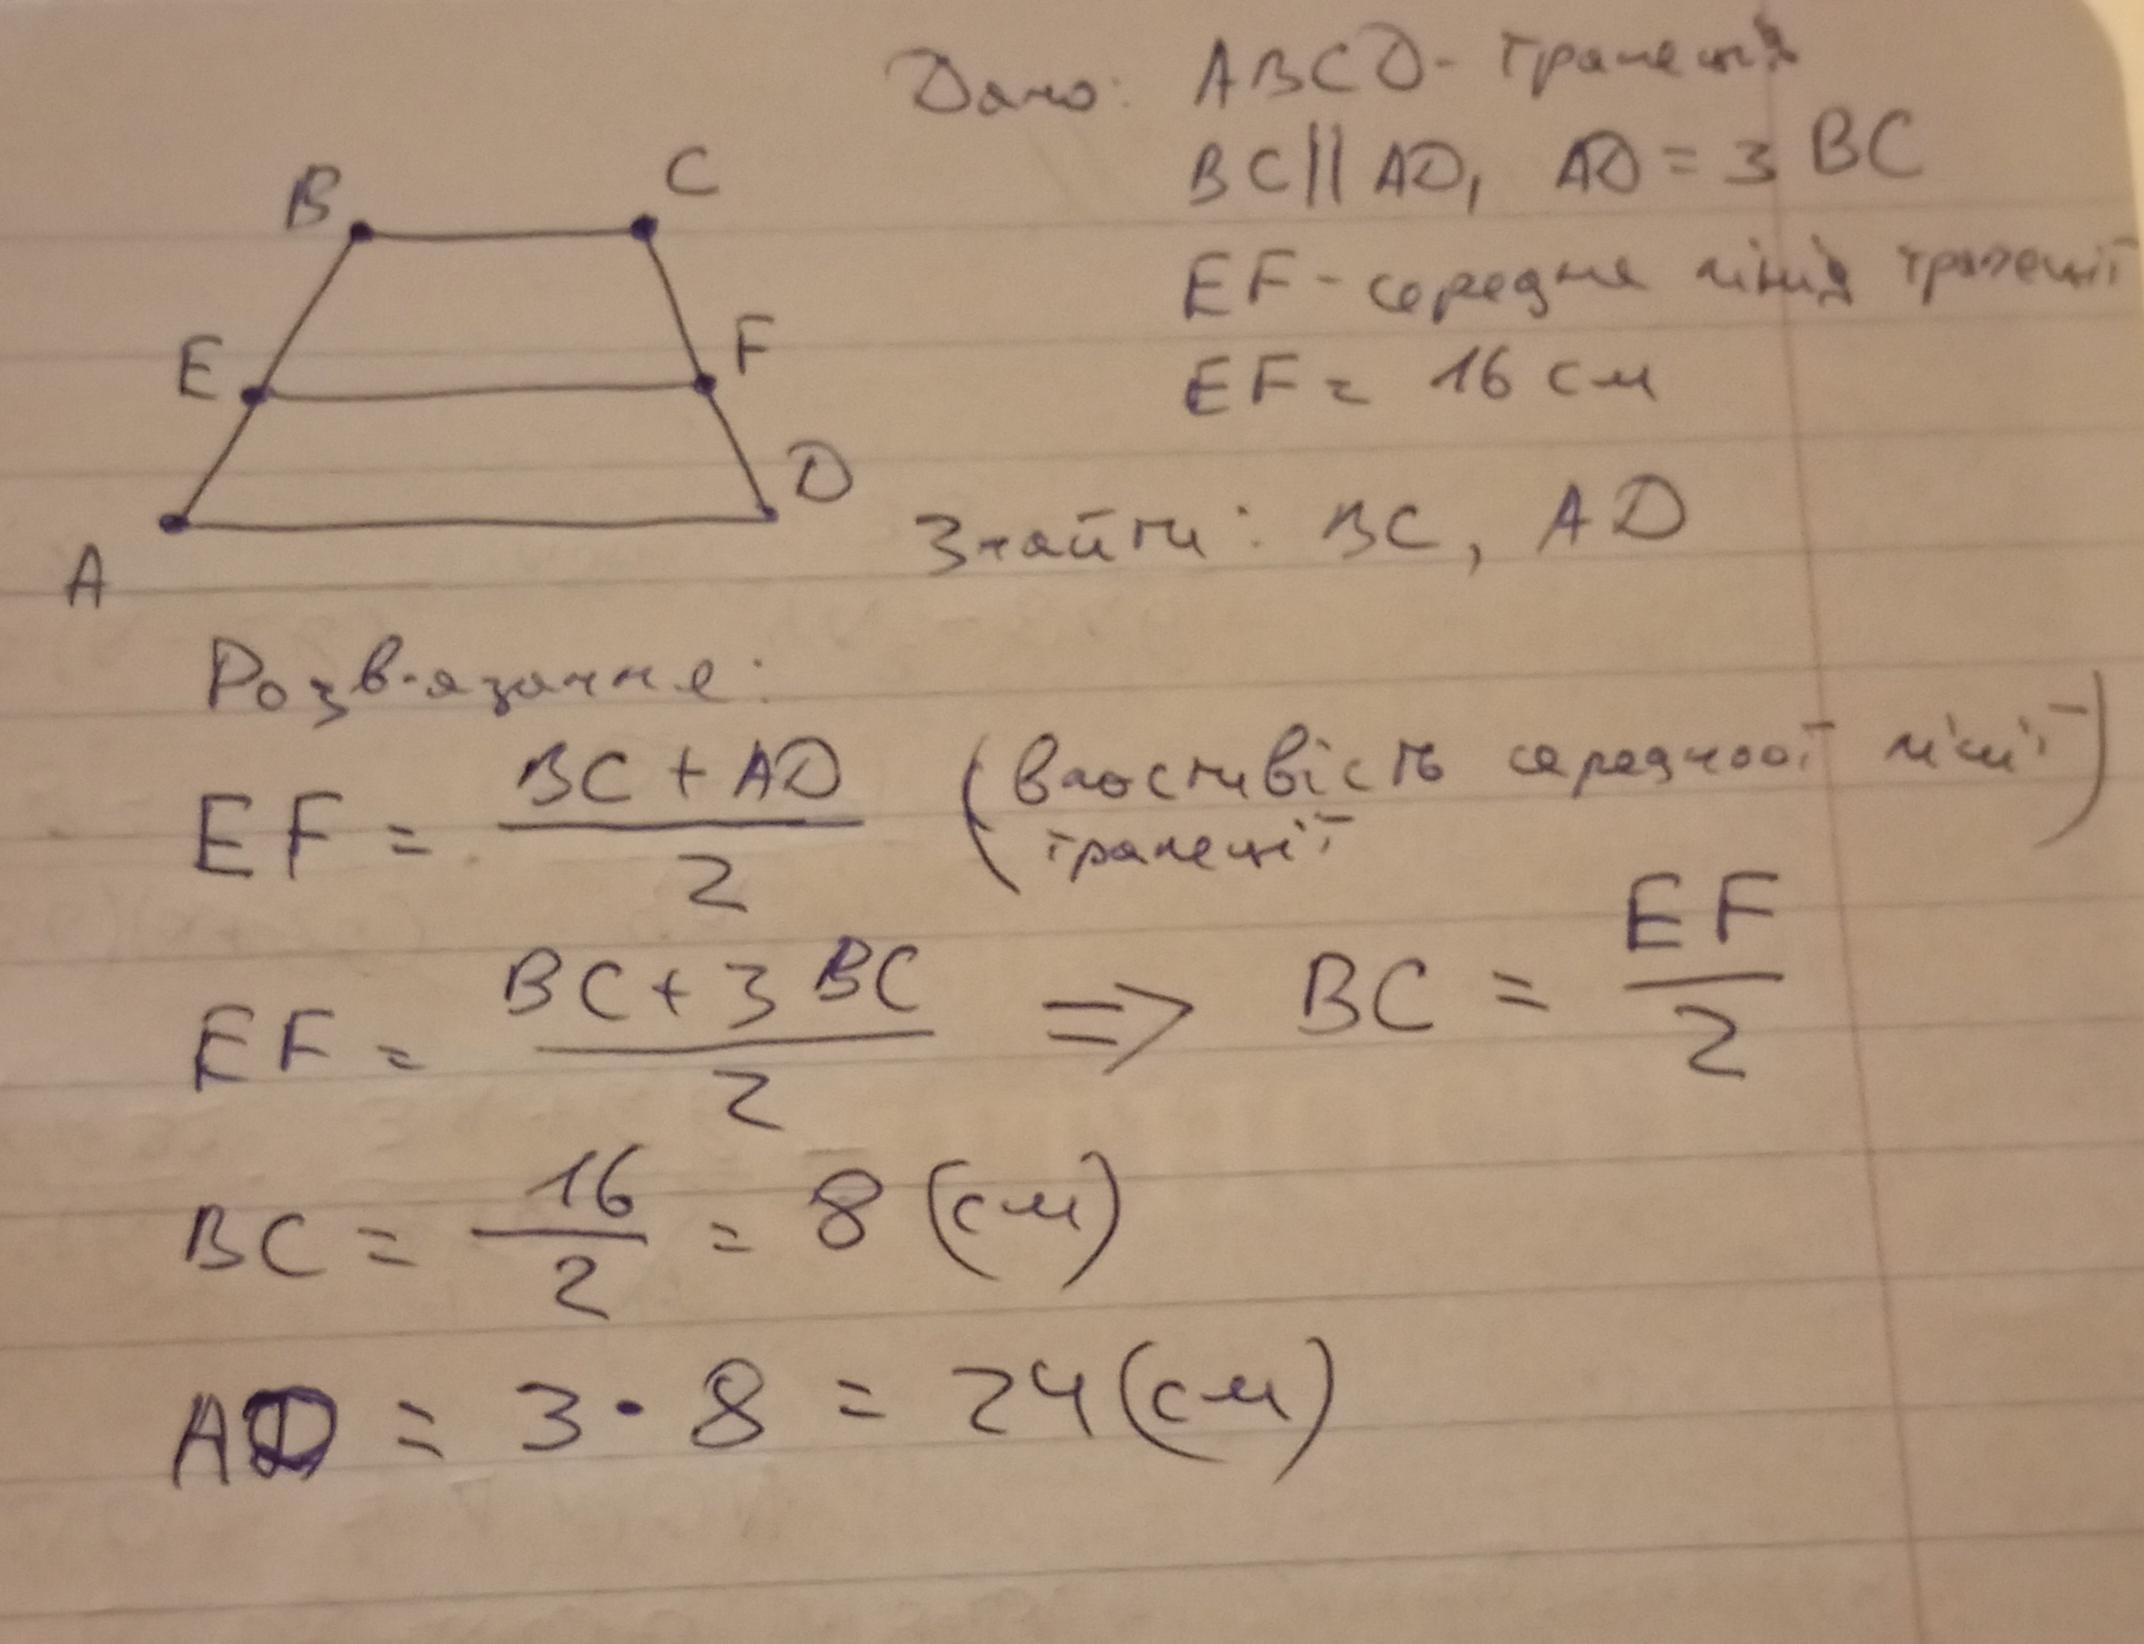 Дано: ABCD - трапеція
BC || AD, AD = 3 BC
EF - середня лінія трапеції
EF = 16 см
Знайти: BC, AD
B
C
E
F
A
D
Розв-язання:
EF = (BC + AD) / 2 (властивість середньої лінії трапеції)
EF = (BC + 3 BC) / 2 => BC = EF / 2
BC = 16 / 2 = 8 (см)
AD = 3 · 8 = 24 (см)